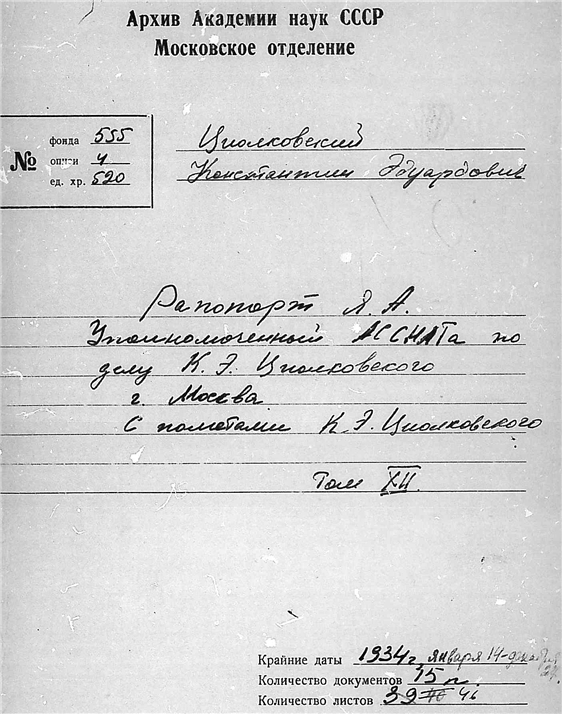 Архив Академии наук СССР
Московское отделение
№
фонда 555
описи 4
ед. хр. 520
Циолковский
Константин Эдуардович
Рапопорт Я. А.
Уполномоченный АССНАТа по
делу К. Э. Циолковского
г. Москва
С пометами К. Э. Циолковского
Том XII.
Крайние даты 1934 г января 14-декабря
Количество документов 15 п.
Количество листов 39 46